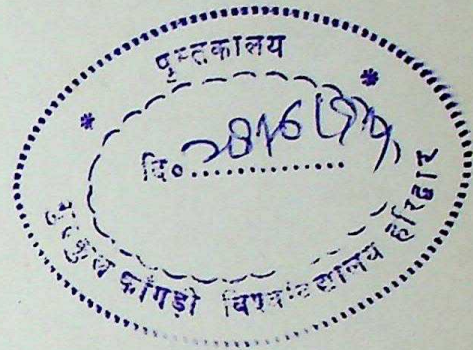 पुस्तकालय
दि०..............
गुरुकुल काँगड़ी विश्वविद्यालय हरिद्वार